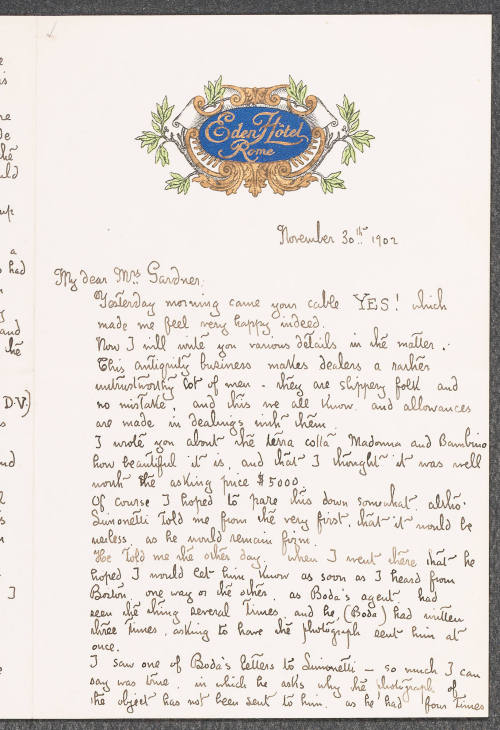 Eden Hôtel
Rome
November 30th 1902
My dear Mrs. Gardner,
Yesterday morning came your cable YES! which
made me feel very happy indeed.
Now I will write you various details in the matter.
This antiquity business makes dealers a rather
untrustworthy lot of men - they are slippery folk and
no mistake, and this we all know and allowances
are made in dealings with them.
I wrote you about the terra cotta Madonna and Bambino
how beautiful it is, and that I thought it was well
worth the asking price $5000.
Of course I hoped to pare this down somewhat, altho'
Simonetti told me from the very first, that it would be
useless, as he would remain firm.
He told me the other day, when I went there that he
hoped I would let him know as soon as I heard from
Boston, one way or the other, as Boda's agent had
seen the thing several times, and he, (Boda) had written
three times, asking to have the photograph sent him at
once.
I saw one of Boda's letters to Simonetti — so much I can
say was true, in which he asks why the photograph of
the object has not been sent to him, as he had four times
had
and
the
D.V.)
I